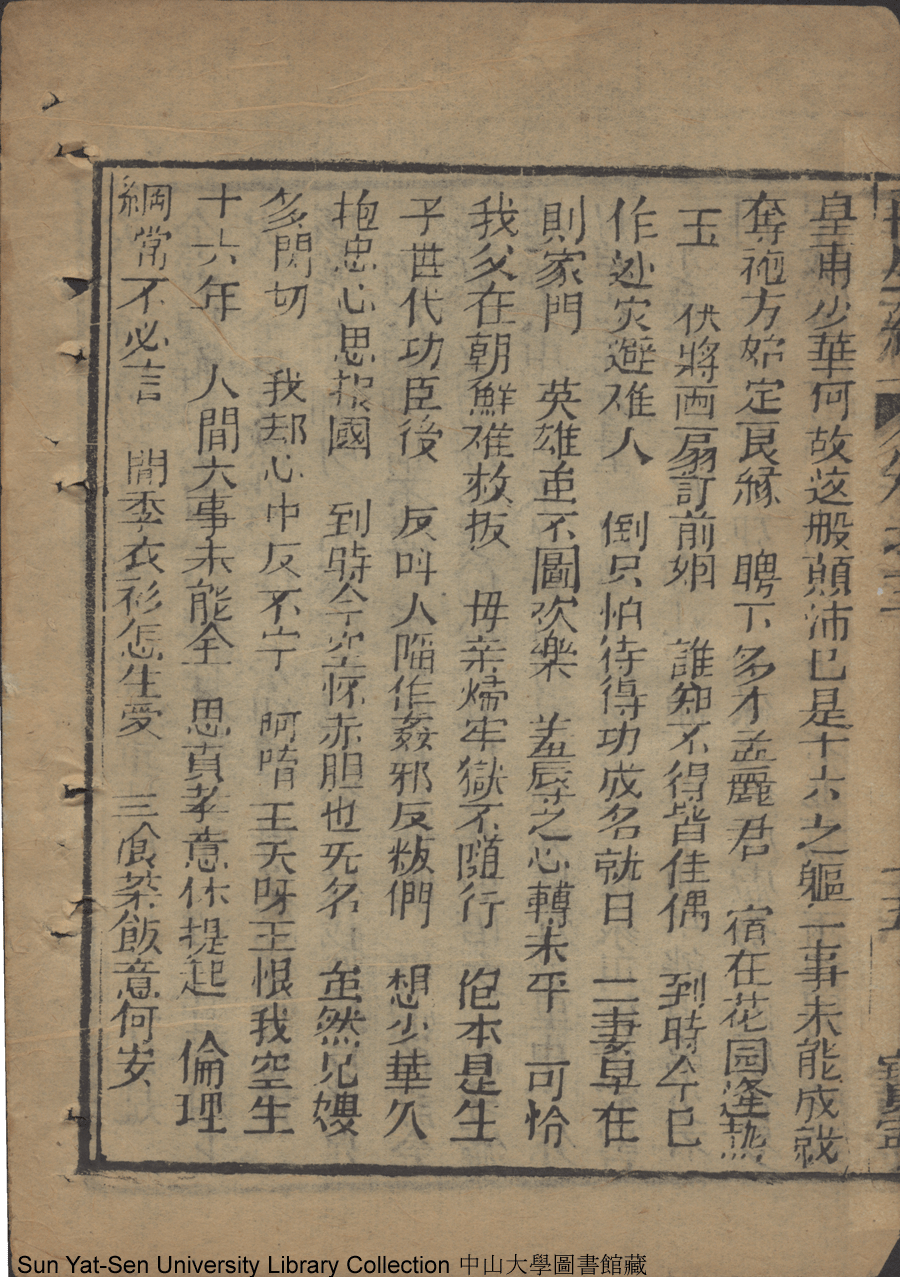 皇甫少華何故这般顛沛已是十六之軀一事未能成就
奪袍方始定良緣 聘下多才孟麗君 宿在花园逢热
玉 伏將西扇訂前姻 誰知不得皆佳偶 到時今已
作赴灾避难人 倒只怕待得功成名就日 二妻早在
則家門 英雄並不圖欢樂 羞辱之心轉未平 可怜
我父在朝鮮难救扳 毋亲 牢獄不隨行 伲本是生
子世代功臣後 反呌人陷作姦邪反叛們 想少華久
抱忠心思报國 到時今空怀赤胆也旡名 虽然兄嫂
多閃切 我却心中反不宁 阿唷王天呀王恨我空生
十六年 人間大事未能全 思真孝意休提起 倫理
綱常不必言 閒季衣衫怎生愛 三飡茶飯意何安
Sun Yat-Sen University Library Collection 中山大學圖書館藏